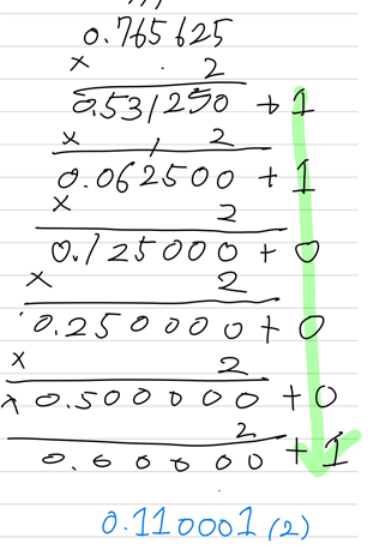 0.765625
× 2
0.531250 + 1
× 2
0.062500 + 1
× 2
0.125000 + 0
× 2
0.250000 + 0
× 2
× 0.500000 + 0
2
0.00000 + 1
0.110001 (2)